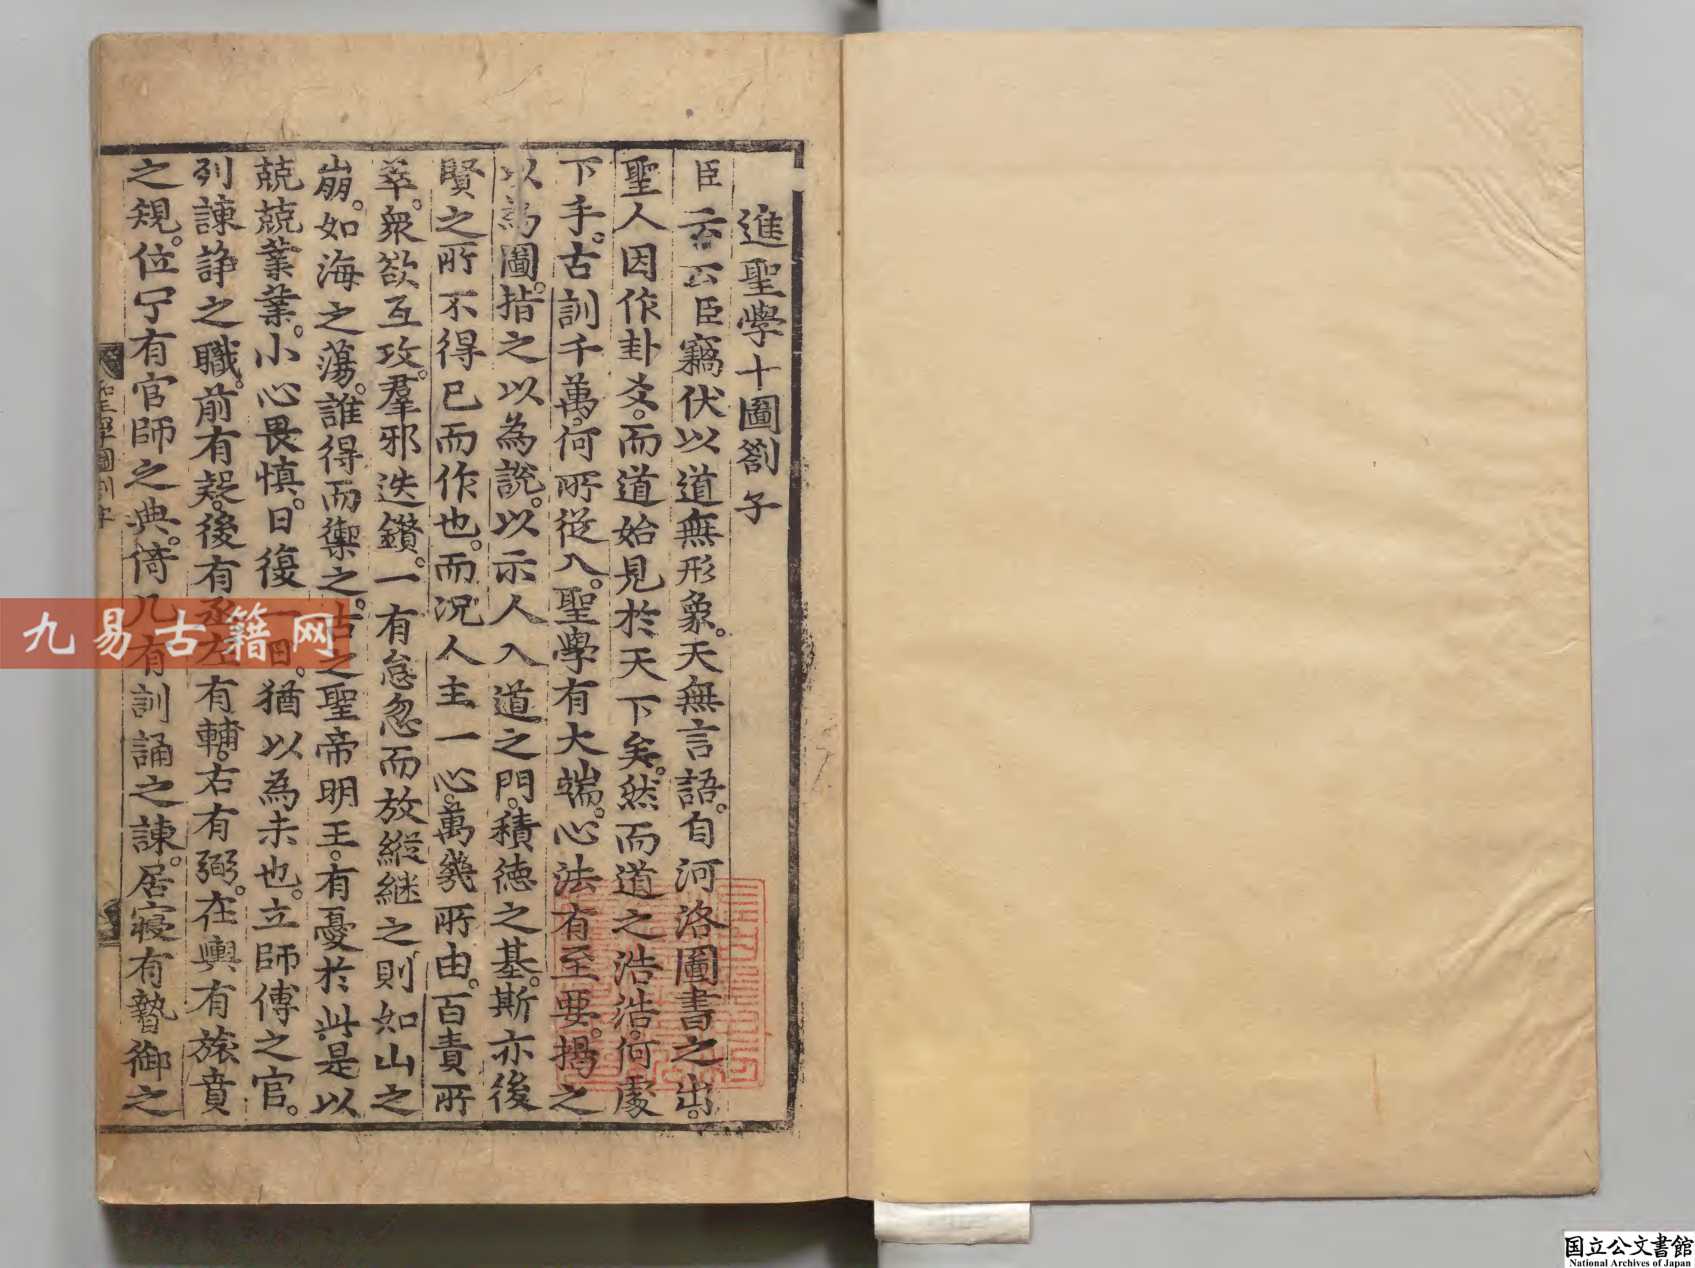 進聖學十圖劄子
臣云云臣竊伏以道無形象。天無言語。自河洛圖書之出。
聖人因作卦爻。而道始見於天下矣。然而道之浩浩。何處
下手。古訓千萬。何所從入。聖學有大端。心法有至要。揭之
以為圖。指之以為說。以示人入道之門。積德之基。斯亦後
賢之所不得已而作也。而況人主一心。萬幾所由。百責所
萃。衆欲互攻。羣邪迭鑽。一有怠忽而放縱継之則如山之
崩。如海之蕩。誰得而禦之。古之聖帝明王。有憂於此。是以
兢兢業業。小心畏慎。日復一日。猶以為未也。立師傅之官。
列諫諍之職。前有疑。後有丞。左有輔。右有弼。在輿有旅賁
之規。位宁有官師之典。倚几有訓誦之諫。居寢有暬御之
聖學圖劄子
九易古籍网
国立公文書館
National Archives of Japan